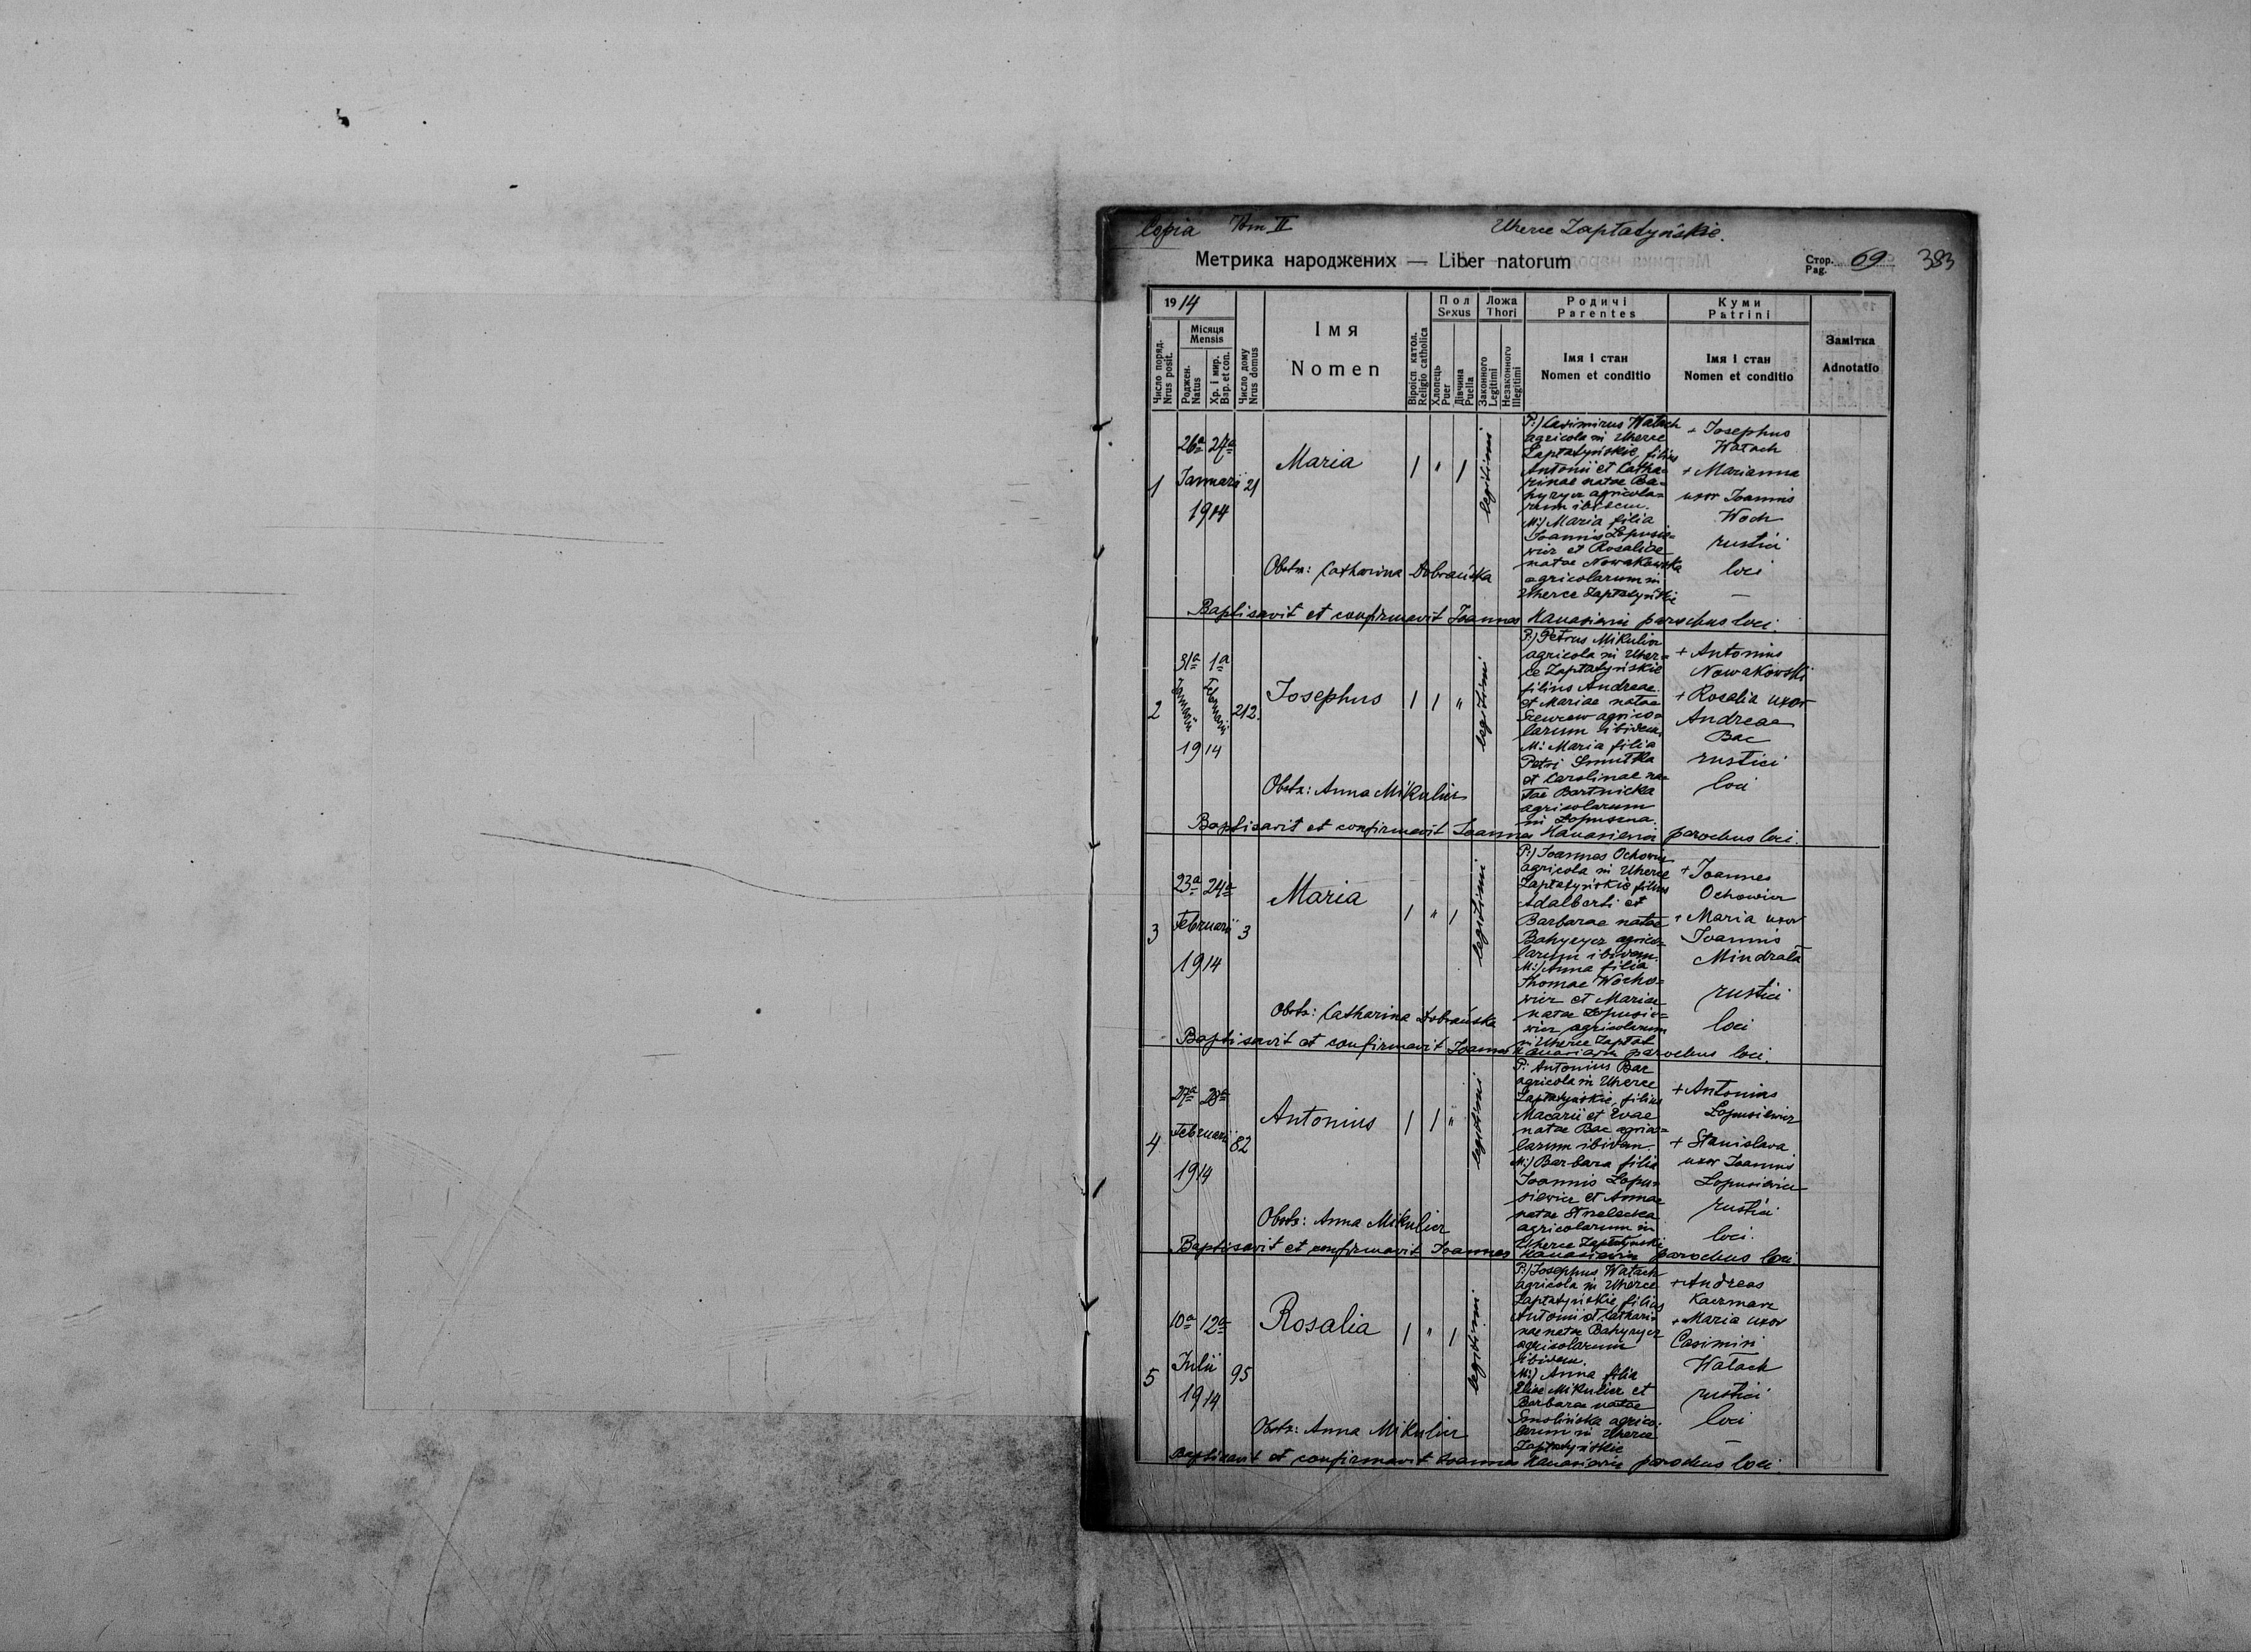 Copia Tom II Uherce Zapłatyńskie.
Метрика народжених — Liber natorum
Стор. Pag. 69 383
1914
Число поряд. Nrus posit.
Місяця Mensis
Роджен. Natus
Хр. і мир. Bap. et con.
Число дому Nrus domus
Імя
Nomen
Віроісп катол. Religio catholica
Пол Sexus
Хлопець Puer
Дівчина Puella
Ложа Thori
Законного Legitimi
Незаконного Illegitimi
Родичі
Parentes
Імя і стан
Nomen et conditio
Куми
Patrini
Імя і стан
Nomen et conditio
Замітка
Adnotatio
1
26a 27a
Januarii
1914
21
Maria
/ " /
legitimi
P:) Casimirus Wałach
agricola in Uherce
Zapłatyńskie, filius
Antonii et Catha-
rinae natae Ba-
hyrycz agricola-
rum ibidem.
M:) Maria filia
Joannis Łopusie-
wicz et Rosaliae
natae Nowakowska
agricolarum in
Uherce Zapłatyńskie
+ Josephus
Wałach
+ Marianna
uxor Joannis
Woch
rustici
loci
—
Obstx: Catharina Dobrańska
Baptisavit et confirmavit Joannes Hanasiewicz parochus loci.
2
31a 1a
Januarii Februarii
1914
212.
Josephus
/ / "
legitimi
P:) Petrus Mikulicz
agricola in Uher-
ce Zapłatyńskie
filius Andreae
et Mariae natae
Szewzew agrico-
larum ibidem.
M: Maria filia
Petri Smutka
et Carolinae na-
tae Bartnicka
agricolarum
in Łopuszna.
+ Antonius
Nowakowski
+ Rosalia uxor
Andreae
Bac
rustici
loci
Obstx: Anna Mikulicz
Baptisavit et confirmavit Joannes Hanasiewicz parochus loci.
3
23a 24a
Februarii
1914
3
Maria
/ " /
legitimi
P:) Joannes Ochowicz
agricola in Uherce
Zapłatyńskie filius
Adalberti et
Barbarae natae
Bahyrycz agrico-
larum ibidem.
M:) Anna filia
Thomae Wocho-
wicz et Mariae
natae Łopusie-
wicz agricolarum
in Uherce Zapłat
+ Joannes
Ochowicz
+ Maria uxor
Joannis
Mindrala
rustici
loci
Obstx: Catharina Dobrańska
Baptisavit et confirmavit Joannes Hanasiewicz parochus loci.
4
27a 28a
Februarii
1914
82
Antonius
/ / "
legitimi
P: Antonius Bac
agricola in Uherce
Zapłatyńskie, filius
Macarii et Evae
natae Bac agrico-
larum ibidem.
M:) Barbara filia
Joannis Łopu-
siewicz et Annae
natae Strzelecka
agricolarum in
Uherce Zapłatyński
+ Antonius
Łopusiewicz
+ Stanislava
uxor Joannis
Łopusiewicz
rustici
loci.
Obstx: Anna Mikulicz
Baptisavit et confirmavit Joannes Hanasiewicz parochus loci
5
10a 12a
Julii
1914
95
Rosalia
/ " /
legitimi
P:) Josephus Wałach
agricola in Uherce
Zapłatyńskie, filius
Antonii et Cathari-
nae natae Bahyrycz
agricolarum
ibidem.
M:) Anna filia
Eliae Mikulicz et
Barbarae natae
Smolińska agrico-
larum in Uherce
Zapłatyńskie
+ Andreas
Kaczmarz
+ Maria uxor
Casimiri
Wałach
rustici
loci
—
Obstx: Anna Mikulicz
Baptisavit et confirmavit Joannes Hanasiewicz parochus loci.